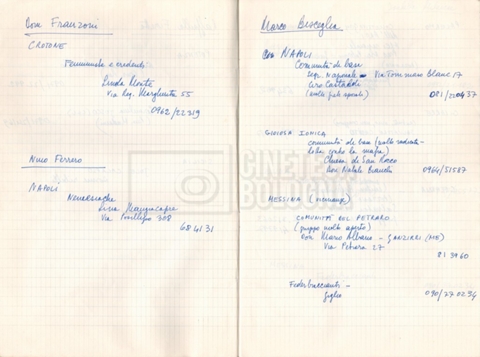 Don Franzoni
CROTONE
Femminista e credente
Linda Monte
Via Reg. Margherita 55
0962/22319
Nino Ferrero
NAPOLI
Nemesiache
Lina Mangiacapre
Via Posillipo 308
684131
Marco Bisceglia
NAPOLI
Comunità di base
Via Tommaso Blanc 17
Ciro Castaldi
081/220437
GIOIOSA IONICA
comunità di base (molto radicata -
lotta contro la mafia)
Chiesa di San Rocco
Don Natale Bianchi 0964/51587
MESSINA (vicinanze)
COMUNITÀ DEL PETRARO
(gruppo molto aperto)
Don Mario Albano - GANZIRRI (ME)
Via Petrara 27
813960
Federbraccianti -
Giglio 090/770234
CINETECA
BOLOGNA